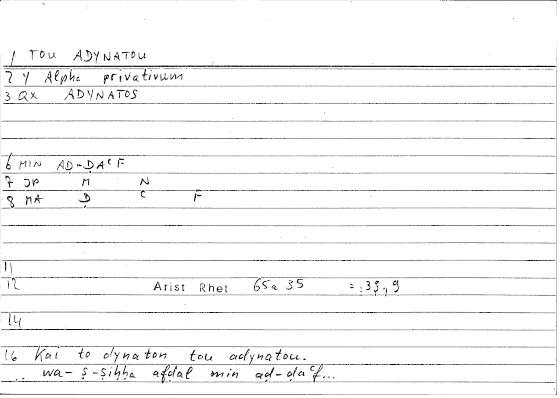 1 TOU ADYNATOU
2 Y Alpha privativum
3 QX ADYNATOS
6 MIN AḌ-ḌAᶜF
7 JP M N
8 MA Ḍ C F
11
12 Arist Rhet 65a 35 = :35,9
14
16 Kai to dynaton tou adynatou.
.. wa-ṣ-ṣiḥḥa afḍal min aḍ-ḍaᶜf...